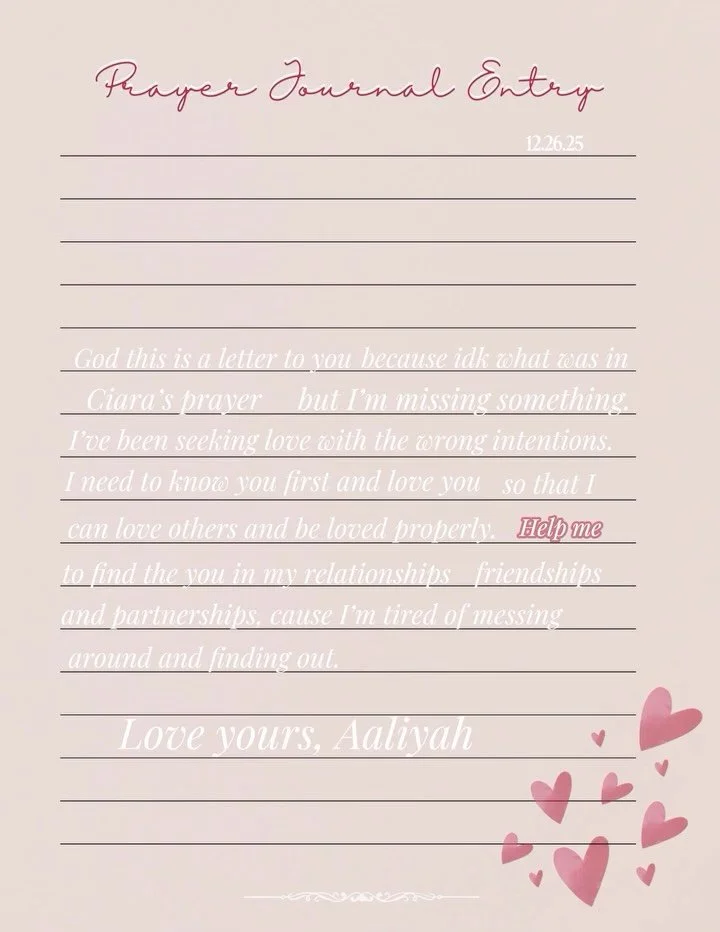 Prayer Journal Entry
12.26.25
God this is a letter to you because idk what was in
Ciara's prayer but I'm missing something.
I've been seeking love with the wrong intentions.
I need to know you first and love you so that I
can love others and be loved properly. Help me
to find the you in my relationships friendships
and partnerships, cause I'm tired of messing
around and finding out.
Love yours, Aaliyah